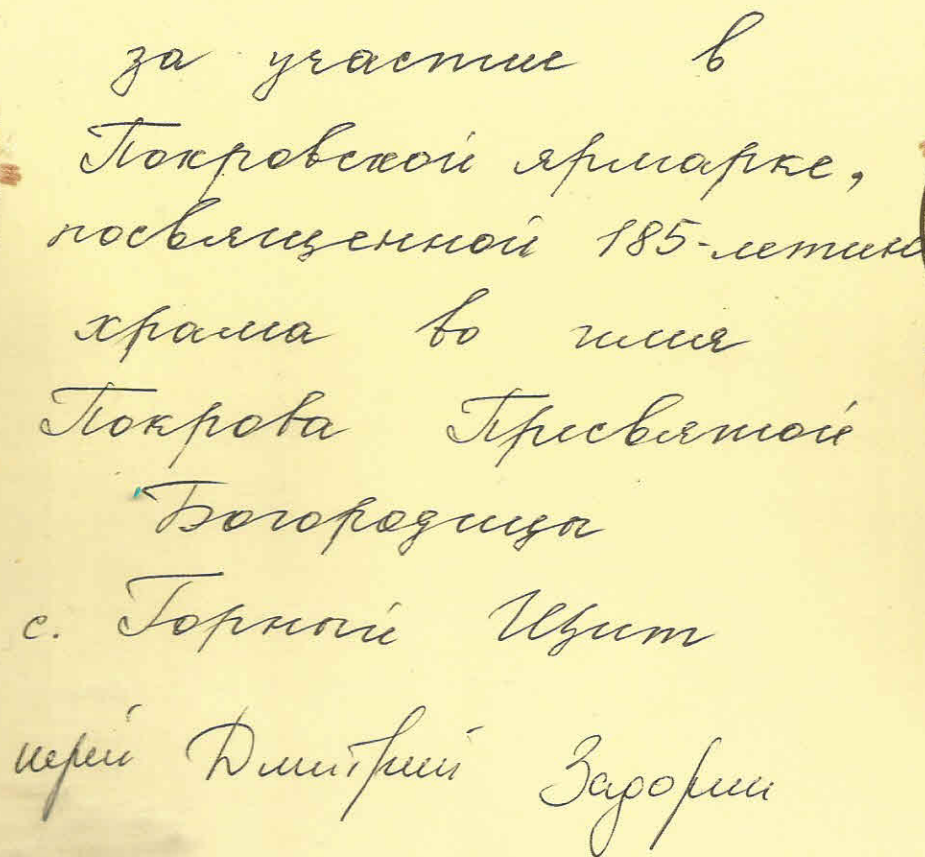 за участие в
Покровской ярмарке,
посвященной 185-летию
храма во имя
Покрова Пресвятой
Богородицы
с. Горный Щит
иерей Дмитрий Задорин